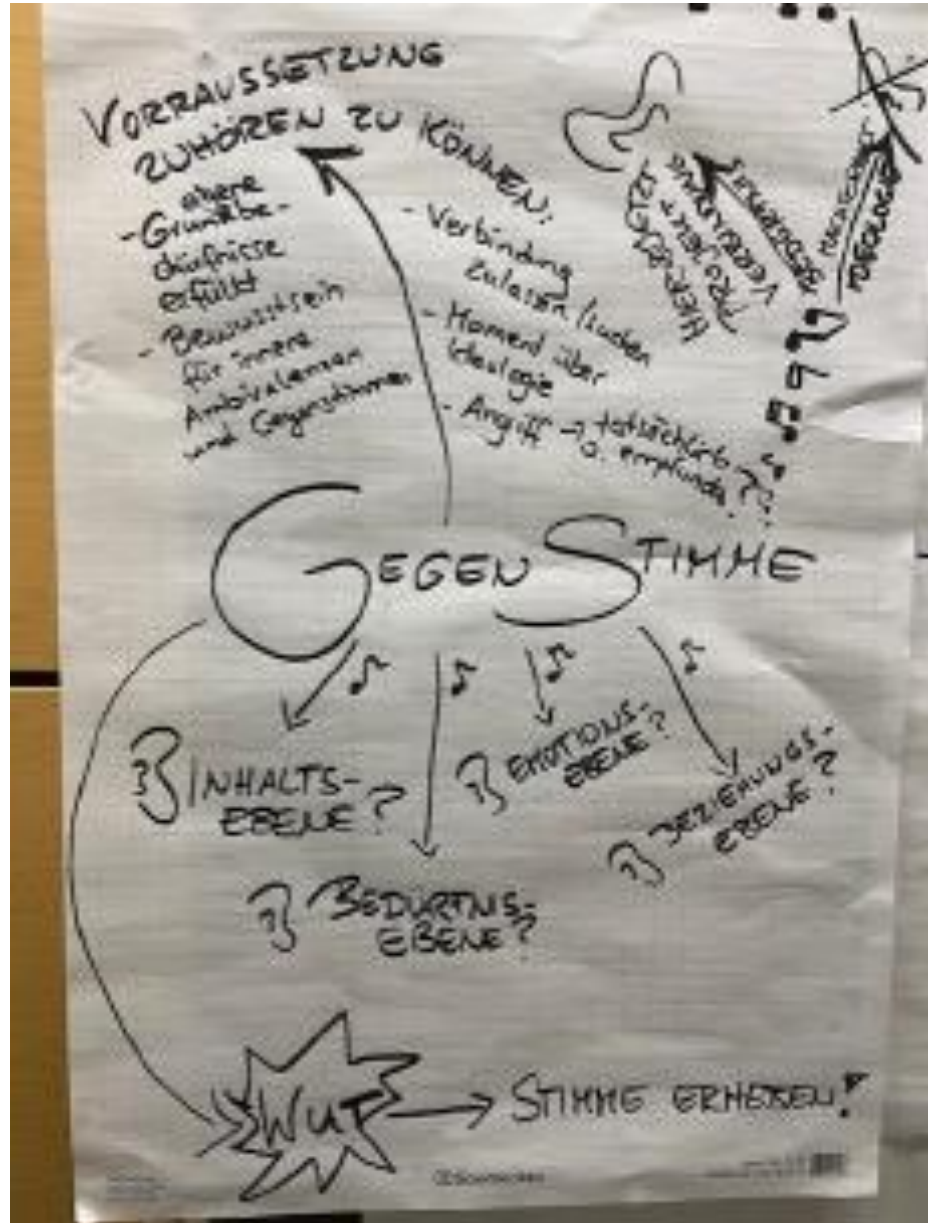 VORRAUSSETZUNG
ZUHÖREN ZU KÖNNEN:
eigene
- Grundbe-
dürfnisse
erfüllt
- Bewusstsein
für innere
Ambivalenzen
und Gegenstimmen
- Verbindung
zulassen / suchen
- Moment über
Ideologie
- Angriff → tatsächlich
o. empfunden???
GEGENSTIMME
INHALTS-
EBENE?
EMOTIONS-
EBENE?
BEZIEHUNGS-
EBENE?
BEDÜRFNIS-
EBENE?
WUT → STIMME ERHEBEN!